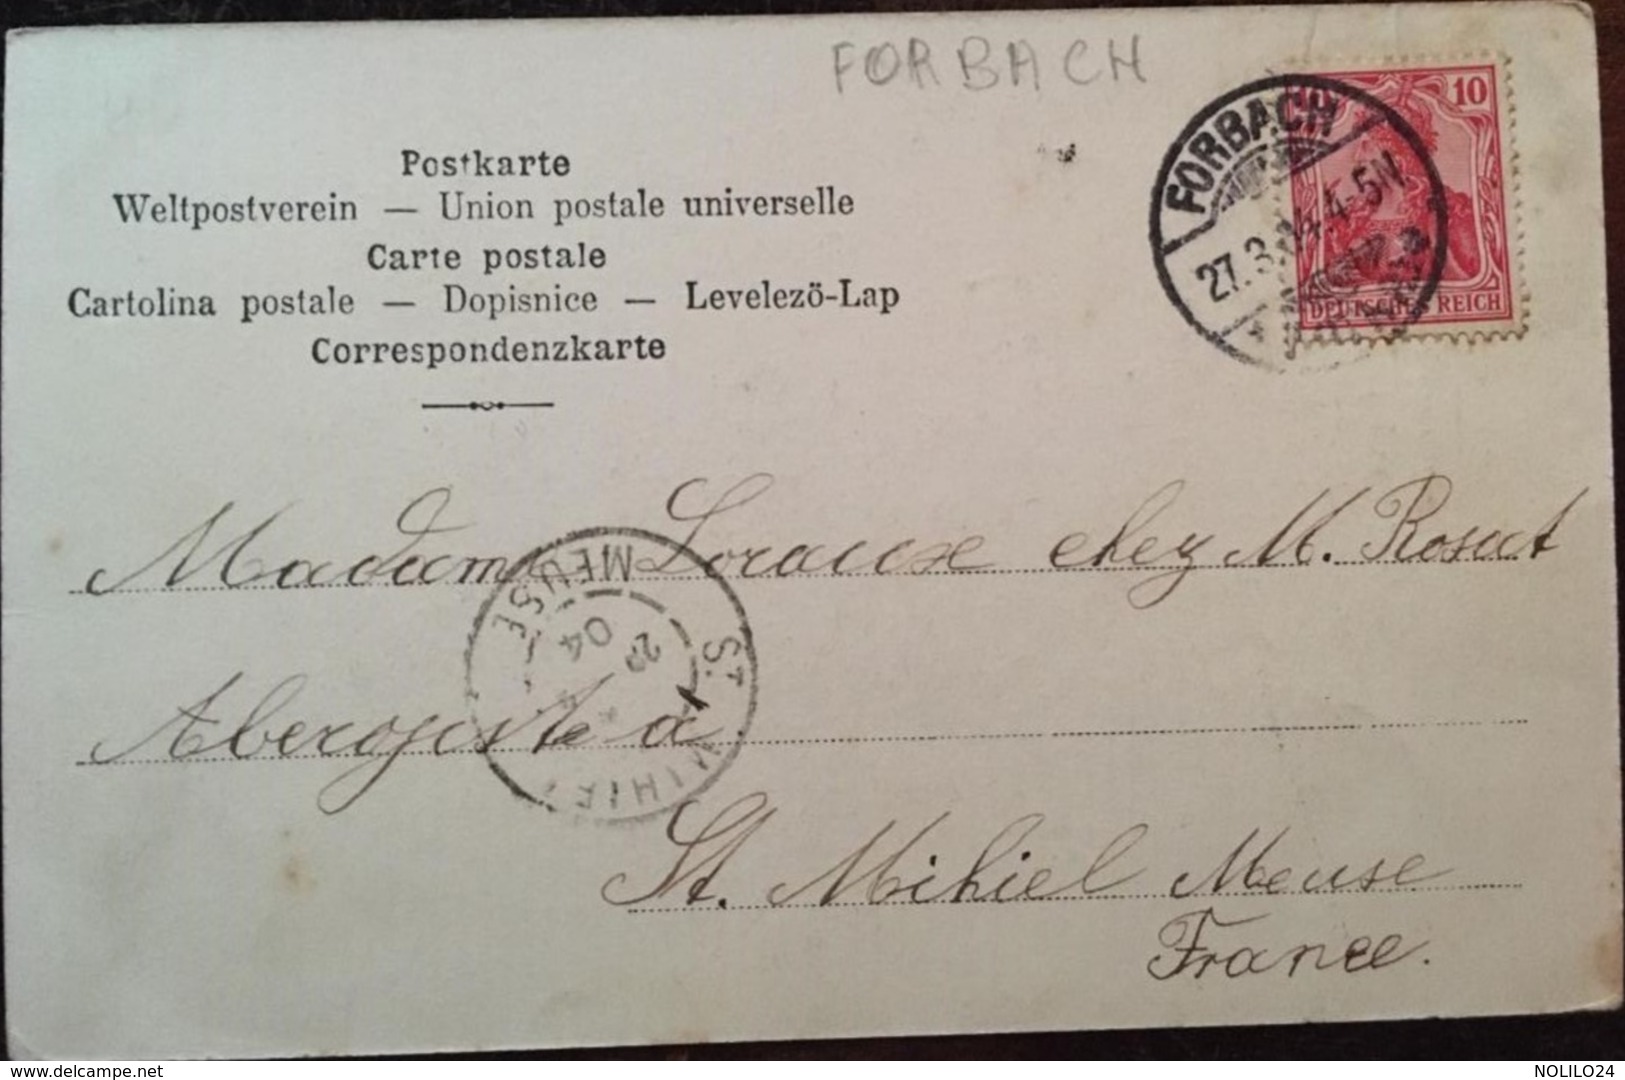 FORBACH
Postkarte
Weltpostverein — Union postale universelle
Carte postale
Cartolina postale — Dopisnice — Levelezö-Lap
Correspondenzkarte
10
DEUTSCHES REICH
FORBACH
27.3. 4-5N
Madam Lorause chez M. Rosat
à
St. Mihiel Meuse
France.
ST. MIHIEL
MEUSE
04
www.delcampe.net
NOLILO24